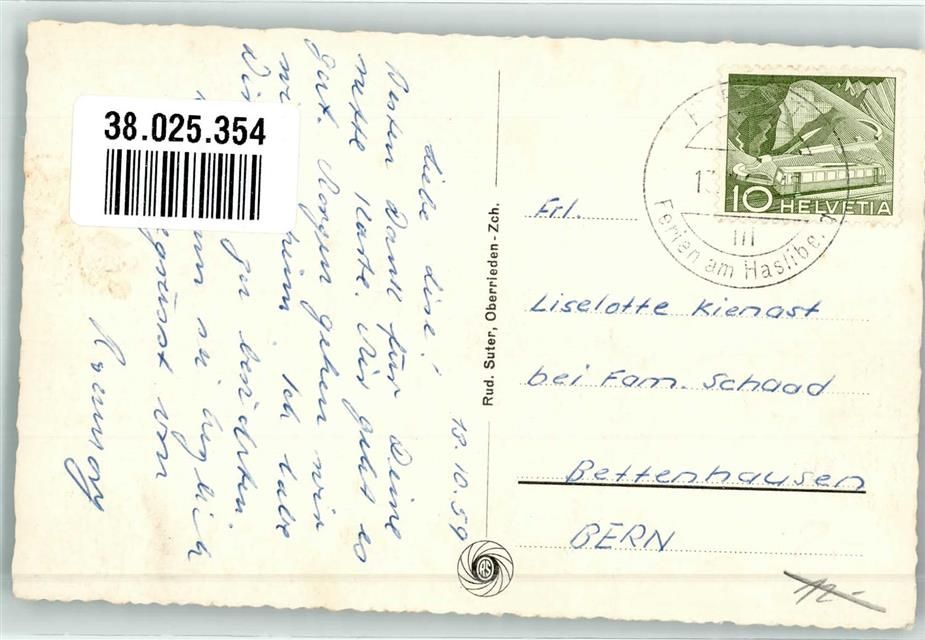 38.025.354
13.10.59
Liebe Lise!
Besten Dank für Deine
nette Karte. Mir geht es
gut. Morgen gehen wir
Ich habe
Dir zu berichten.
sei herzlich
gegrüsst von
Rosmary
Rud. Suter, Oberrieden-Zch.
RS
10 HELVETIA
13.
III
Ferien am Haslibe
Frl.
Liselotte Kienast
bei Fam. Schaad
Bettenhausen
BERN